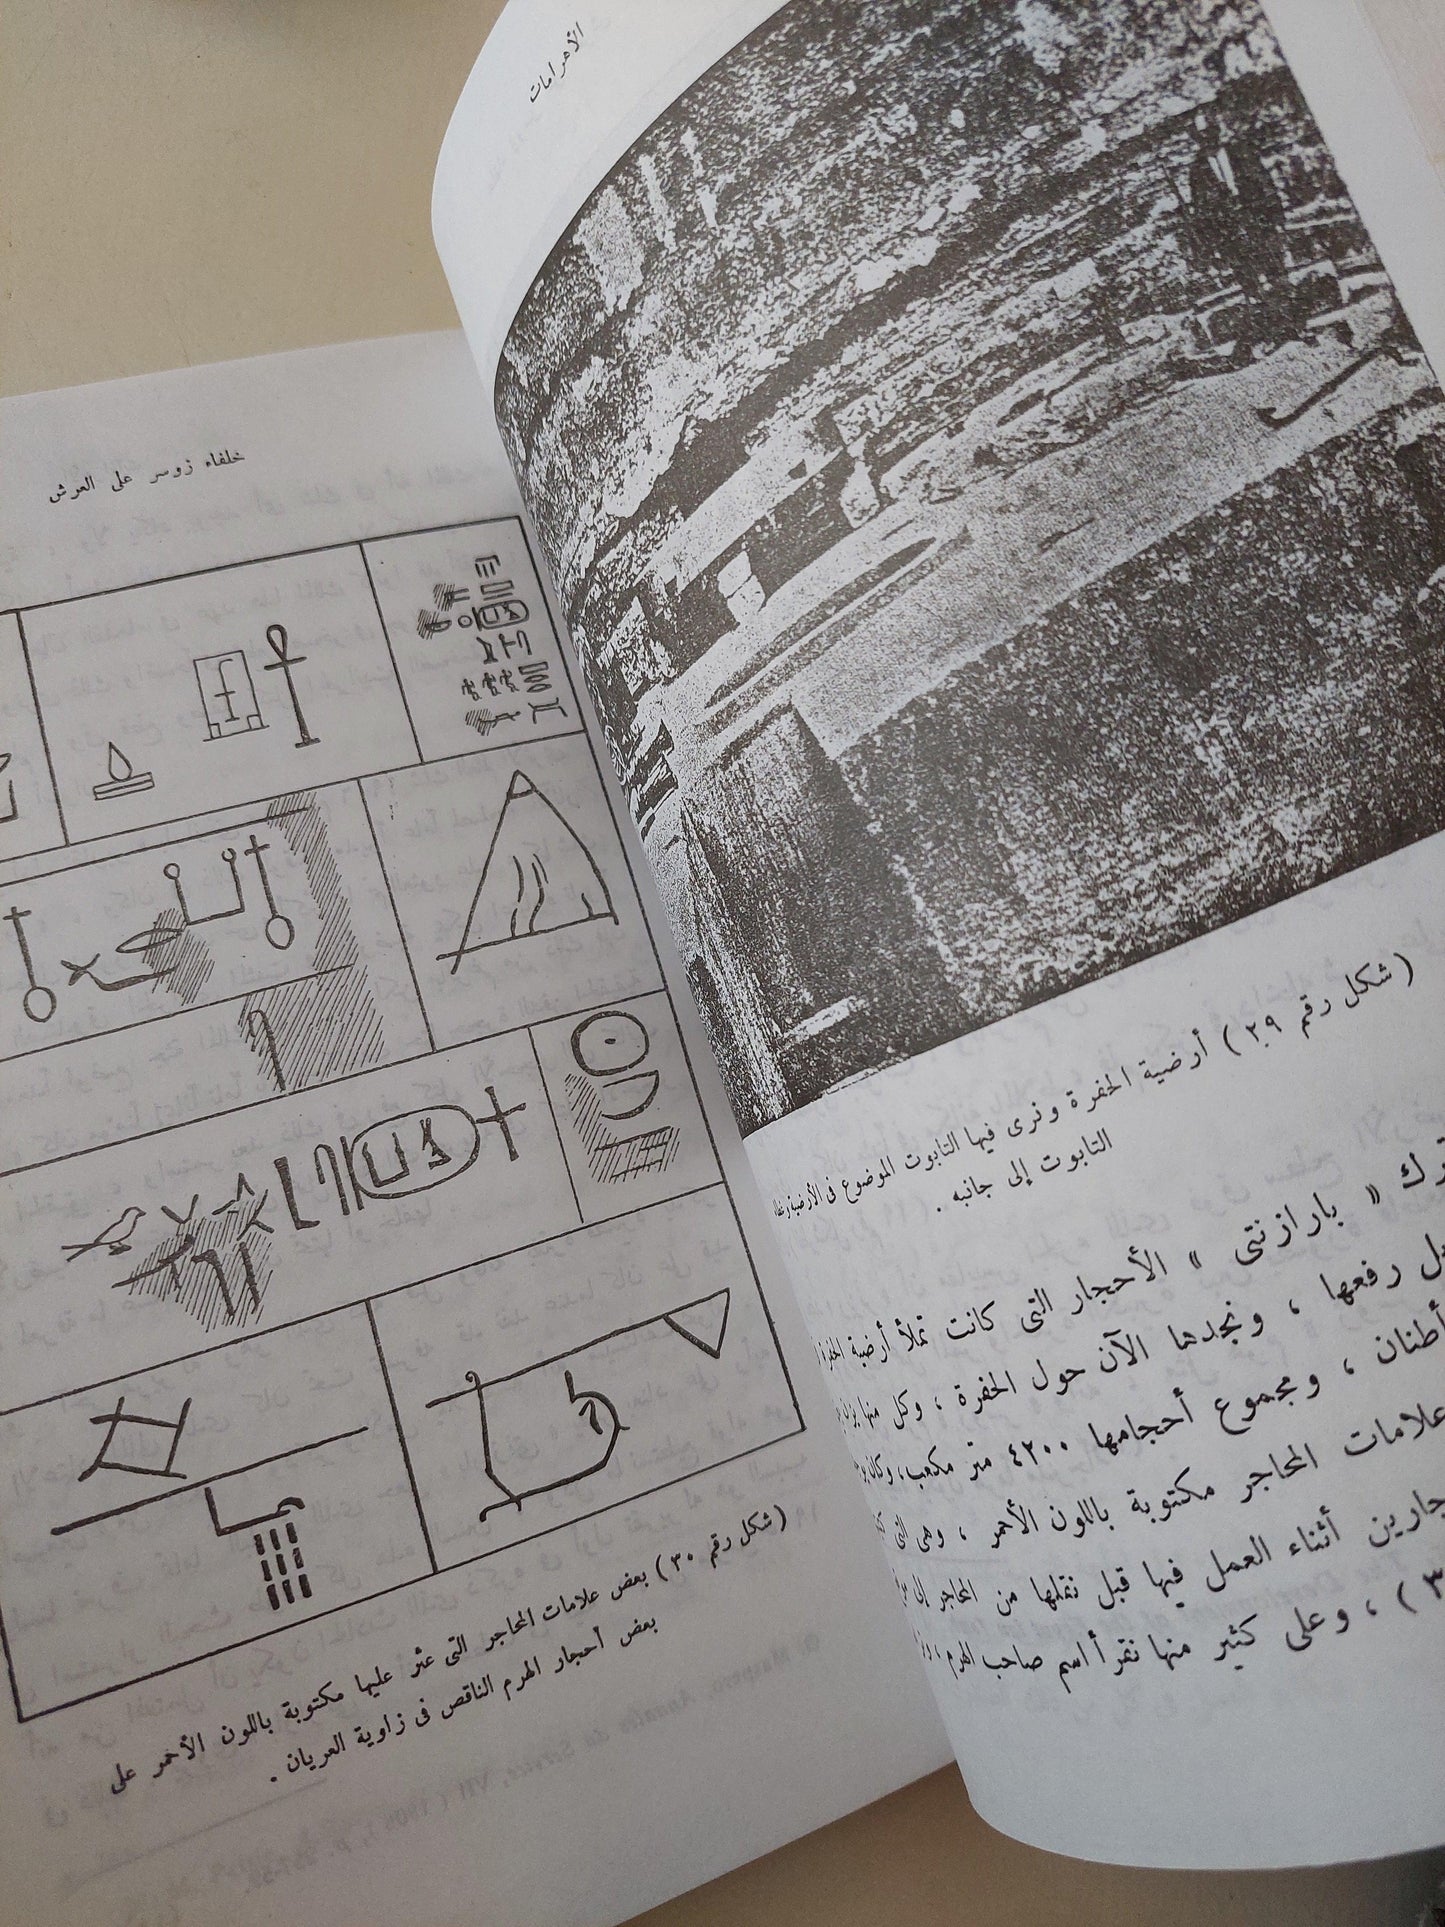 الأهرامات
( شكل رقم ٢٩ ) أرضية الحفرة ونرى فيها التابوت الموضوع فى الأرضية وغطاء
التابوت إلى جانبه .
« بارازنتى » الأحجار التى كانت تملأ أرضية الحفرة
رفعها ، ونجدها الآن حول الحفرة ، وكل منها
أطنان ، ومجموع أحجامها ٤٢٠٠ متر مكعب ، وكان
علامات المحاجر مكتوبة باللون الأحمر ، وهى التى
أثناء العمل فيها قبل نقلها من المحاجر إلى
) ، وعلى كثير منها نقرأ اسم صاحب الهرم ،
خلفاء زوسر على العرش
( شكل رقم ٣٠ ) بعض علامات المحاجر التى عثر عليها مكتوبة باللون الأحمر على
بعض أحجار الهرم الناقص فى زاوية العريان .